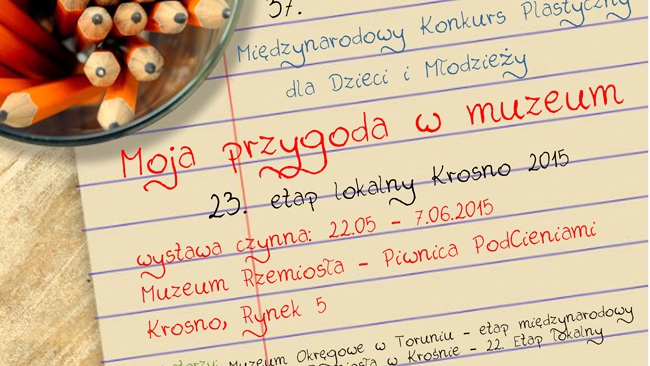 37.
Międzynarodowy Konkurs Plastyczny
dla Dzieci i Młodzieży
Moja przygoda w muzeum
23. etap lokalny Krosno 2015
wystawa czynna: 22.05 - 7.06.2015
Muzeum Rzemiosła - Piwnica PodCieniami
Krosno, Rynek 5
Muzeum Okręgowe w Toruniu - etap międzynarodowy
w Krośnie - 22. Etap lokalny